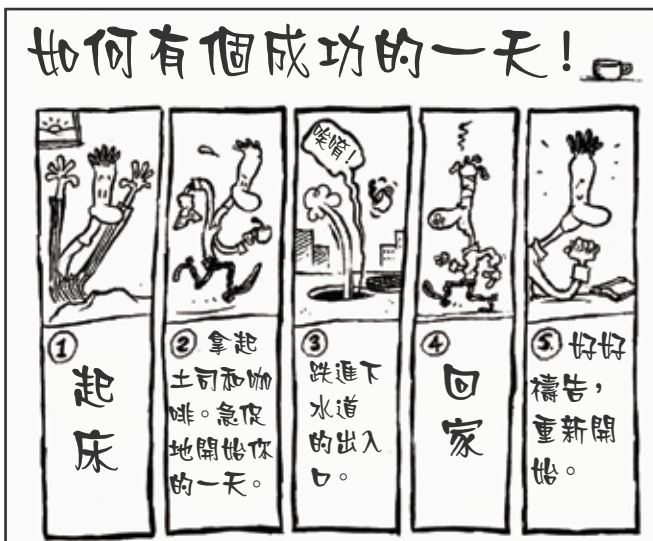 如何有個成功的一天！
① 起
床
② 拿起
土司和咖
啡。急促
地開始你
的一天。
唉唷！
③
跌進下
水道
的出入
口。
④
回
家
⑤. 好好
禱告，
重新開
始。